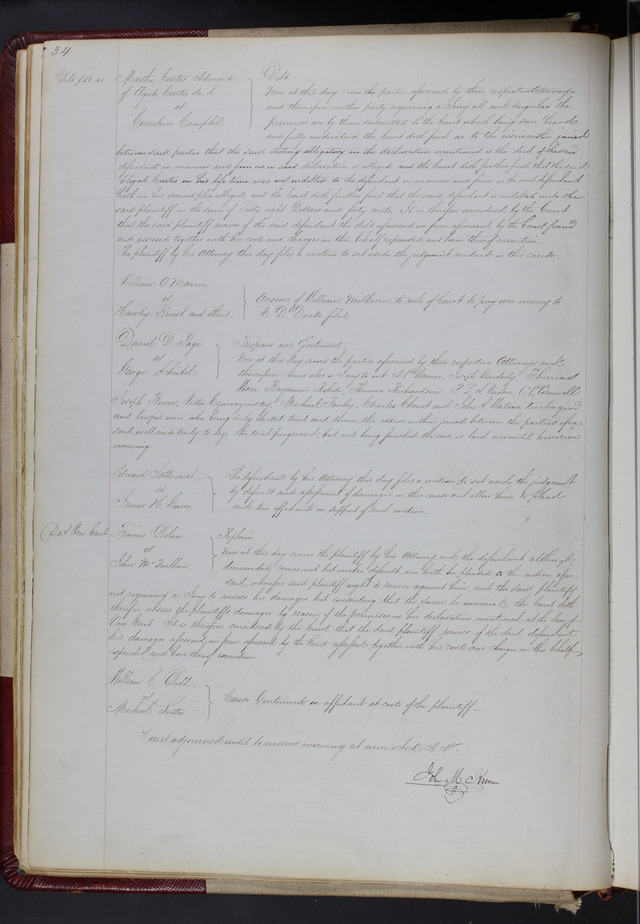 34
Debt $68.40
Martha Curtis Admx &c
of Elijah Curtis decd.
vs
Cornelius Campbell
Debt
Now at this day come the parties aforesaid by their respective Attorneys
and thereupon neither party requiring a Jury all and singular the
premises are by them submitted to the Court which being seen heard
and fully understood the Court doth find as to the issue within joined
between said parties that the said writing obligatory in the declaration mentioned is the deed of the said
defendant in manner and form as in said declaration is alleged and the Court doth further find that the said
Elijah Curtis in his life time was not indebted to the defendant in manner and form as the said defendant
hath in his second plea alleged and the Court doth further find that the said defendant is indebted unto the
said plaintiff in the sum of Sixty eight Dollars and forty cents. It is therefore considered by the Court
that the said plaintiff recover of the said defendant the debt aforesaid in form aforesaid by the Court found
and assessed together with her costs and charges in this behalf expended and have thereof execution.
The plaintiff by her Attorney this day files a motion to set aside the judgment rendered in this cause.
William O.
vs
and others
Answer of William Milburn to rule of Court to pay over money to
D. Drake filed.
Daniel D. Page
vs
George
Trespass and Ejectment.
Now at this day come the parties aforesaid by their respective Attorneys and
thereupon comes also a Jury to wit, Joseph Thomas
Hare, Benjamin Thomas Richardson,
Joseph Michael Charles and John S. Watson twelve good
and lawful men who being duly elected, tried and sworn the issue within joined between the parties afore-
said well and truly to try the trial progressed, but not being finished the case is laid over until tomorrow
morning.
Edward
vs
James H.
The defendant by his Attorney this day files a motion to set aside the judgment
by default and assessment of damages in this cause and allow him to plead
and two affidavits in support of said motion.
Dad One Cent
Francis Dolan
vs
John McQuillan
Replevin
Now at this day comes the plaintiff by his Attorney and the defendant although
demanded comes not but makes default, nor hath he pleaded to the action afore-
said, wherefore said plaintiff ought to recover against him, and the said plaintiff
not requiring a Jury to assess his damages but consenting that the same be the Court doth
therefore assess the plaintiffs damages by reason of the premises in his declaration mentioned at the sum of
One Cent. It is therefore considered by the Court that the said plaintiff recover of the said defendant
his damages aforesaid in form aforesaid by the Court assessed together with his costs and charges in this behalf
expended and have thereof execution.
William C.
vs
Michael
Cause Continued on affidavit at costs of the plaintiff.
Court adjourned until tomorrow morning at nine oclock A. M.
John M.